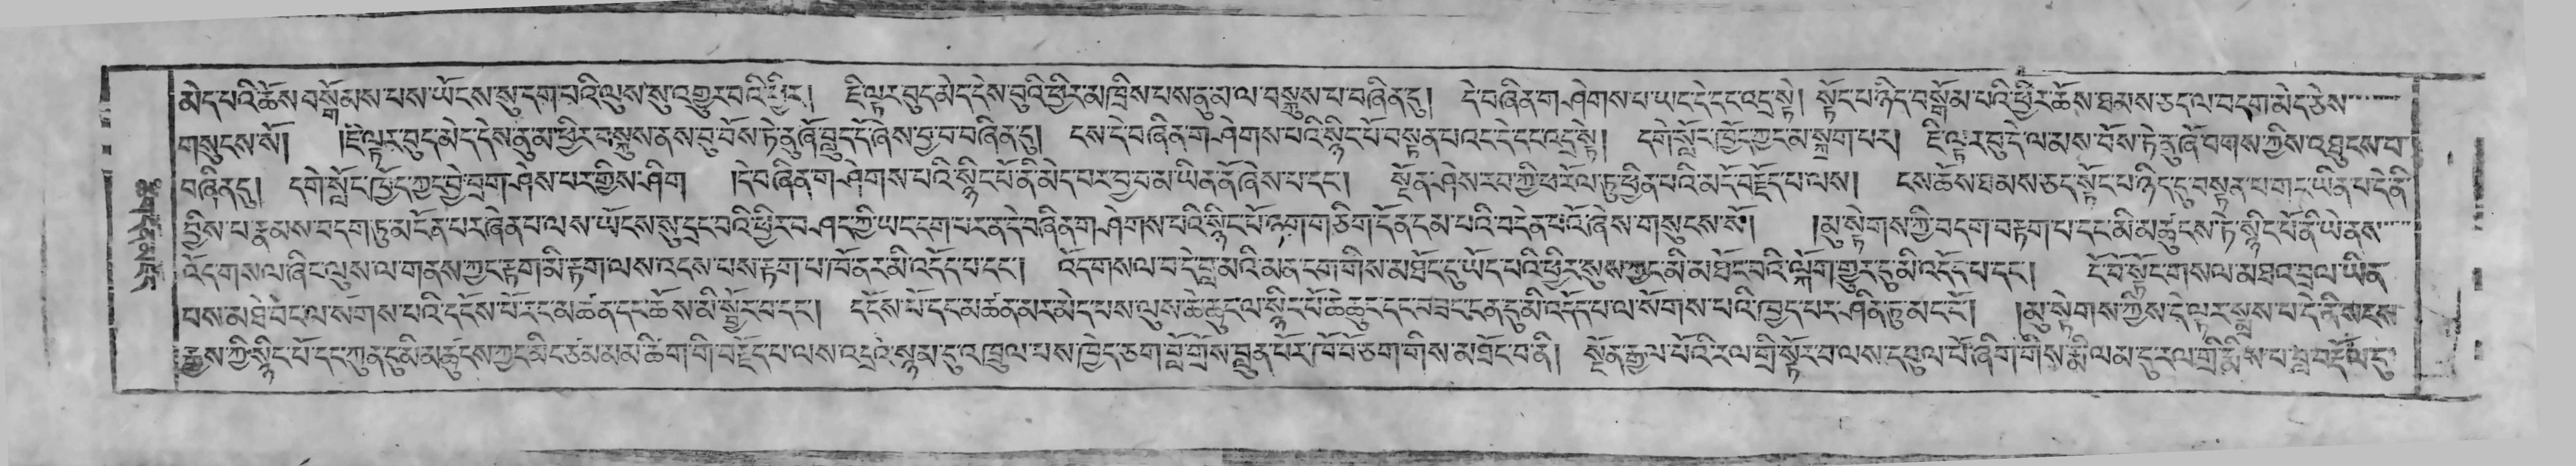 མེད་པའི་ཆོས་བསྒོམས་པས་ཡོངས་སུ་དག་པའི་ལུས་སུ་འགྱུར་བའི་ཕྱིར། ཇི་ལྟར་བུད་མེད་དེས་བུའི་ཕྱིར་མཁྲིས་པས་ནུ་མ་ལ་བསྐུས་པ་བཞིན་དུ། དེ་བཞིན་གཤེགས་པ་ཡང་དེ་དང་འདྲ་སྟེ། སྟོང་པ་ཉིད་བསྒོམ་པའི་ཕྱིར་ཆོས་ཐམས་ཅད་ལ་བདག་མེད་ཅེས
གསུངས་སོ། །ཇི་ལྟར་བུད་མེད་དེས་ནུ་མ་ཕྱིར་བསྐུས་ནས་བུ་བོས་ཏེ་ནུ་ཞོ་བླུད་དོ་ཞེས་བྱ་བ་བཞིན་དུ། ངས་དེ་བཞིན་གཤེགས་པའི་སྙིང་པོ་བསྟན་པའང་དེ་དང་འདྲ་སྟེ། དགེ་སློང་ཁྱོད་ཀྱང་མ་སྐྲག་པར། ཇི་ལྟར་བུ་དེ་ལ་མས་བོས་ཏེ་ནུ་ཞོ་བགས་ཀྱིས་འཐུངས་པ
བཞིན་དུ། དགེ་སློང་ཁྱོད་ཀྱང་བྱེ་བྲག་ཤེས་པར་གྱིས་ཤིག །དེ་བཞིན་གཤེགས་པའི་སྙིང་པོ་ནི་མེད་པར་བྱ་བ་མ་ཡིན་ནོ་ཞེས་པ་དང་། སྔོན་ཤེས་རབ་ཀྱི་ཕ་རོལ་ཏུ་ཕྱིན་པའི་མདོ་བརྗོད་པ་ལས། ངས་ཆོས་ཐམས་ཅད་སྟོང་པ་ཉིད་དུ་བསྟན་པ་གང་ཡིན་པ་དེ་ནི
བྱིས་པ་རྣམས་བདག་ཏུ་མངོན་པར་ཞེན་པ་ལས་ཡོངས་སུ་དྲང་བའི་ཕྱིར་བཤད་ཀྱི་ཡང་དག་པར་ན་དེ་བཞིན་གཤེགས་པའི་སྙིང་པོ་ཉག་གཅིག་དོན་དམ་པའི་བདེན་པའོ་ཞེས་གསུངས་སོ། །མུ་སྟེགས་ཀྱི་བདག་བརྟག་པ་དང་མི་མཚུངས་ཏེ་སྙིང་པོ་ནི་ཡེ་ནས
འོད་གསལ་ཞིང་ལུས་ལ་གནས་ཀྱང་རྟག་མི་རྟག་ལས་འདས་པས་རྟག་པ་ཁོ་ནར་མི་འདོད་པ་དང་། འོད་གསལ་བ་དེ་བླ་མའི་མན་ངག་གིས་མཐོང་དུ་ཡོད་པའི་ཕྱིར་སུས་ཀྱང་མི་མཐོང་བའི་ལྐོག་གྱུར་དུ་མི་འདོད་པ་དང་། ངོ་བོ་སྟོང་གསལ་མཐའ་བྲལ་ཡིན
པས་མཐེ་བོང་ལ་སོགས་པའི་དངོས་པོ་རང་མཚན་དང་ཆོས་མི་སྦྱོར་བ་དང་། དངོས་པོ་དང་མཚན་མར་མེད་པས་ལུས་ཆེ་ཆུང་ལ་སྙིང་པོ་ཆེ་ཆུང་དང་བཟང་ངན་དུ་མི་འདོད་པ་ལ་སོགས་པའི་ཁྱད་པར་ཤིན་ཏུ་མང་ངོ་། །མུ་སྟེགས་ཀྱིས་དེ་ལྟར་སྨྲས་པ་དེ་ནི་སངས
རྒྱས་ཀྱི་སྙིང་པོ་དང་ཀུན་ཏུ་མི་མཚུངས་ཀྱང་མིང་ཙམ་མམ་ཚིག་གི་བརྗོད་པ་ལས་འདྲའོ་སྙམ་དུ་འཁྲུལ་པས་ཁྱེད་ཅག་བློ་གྲོས་བླུན་པོར་ཁོ་བོ་ཅག་གིས་མཐོང་བ་ནི། སྔོན་རྒྱལ་པོའི་རལ་གྲི་སྟོར་བ་ལས་དབུལ་པོ་ཞིག་གིས་རྨི་ལམ་དུ་རལ་གྲི་རྨིས་པ་